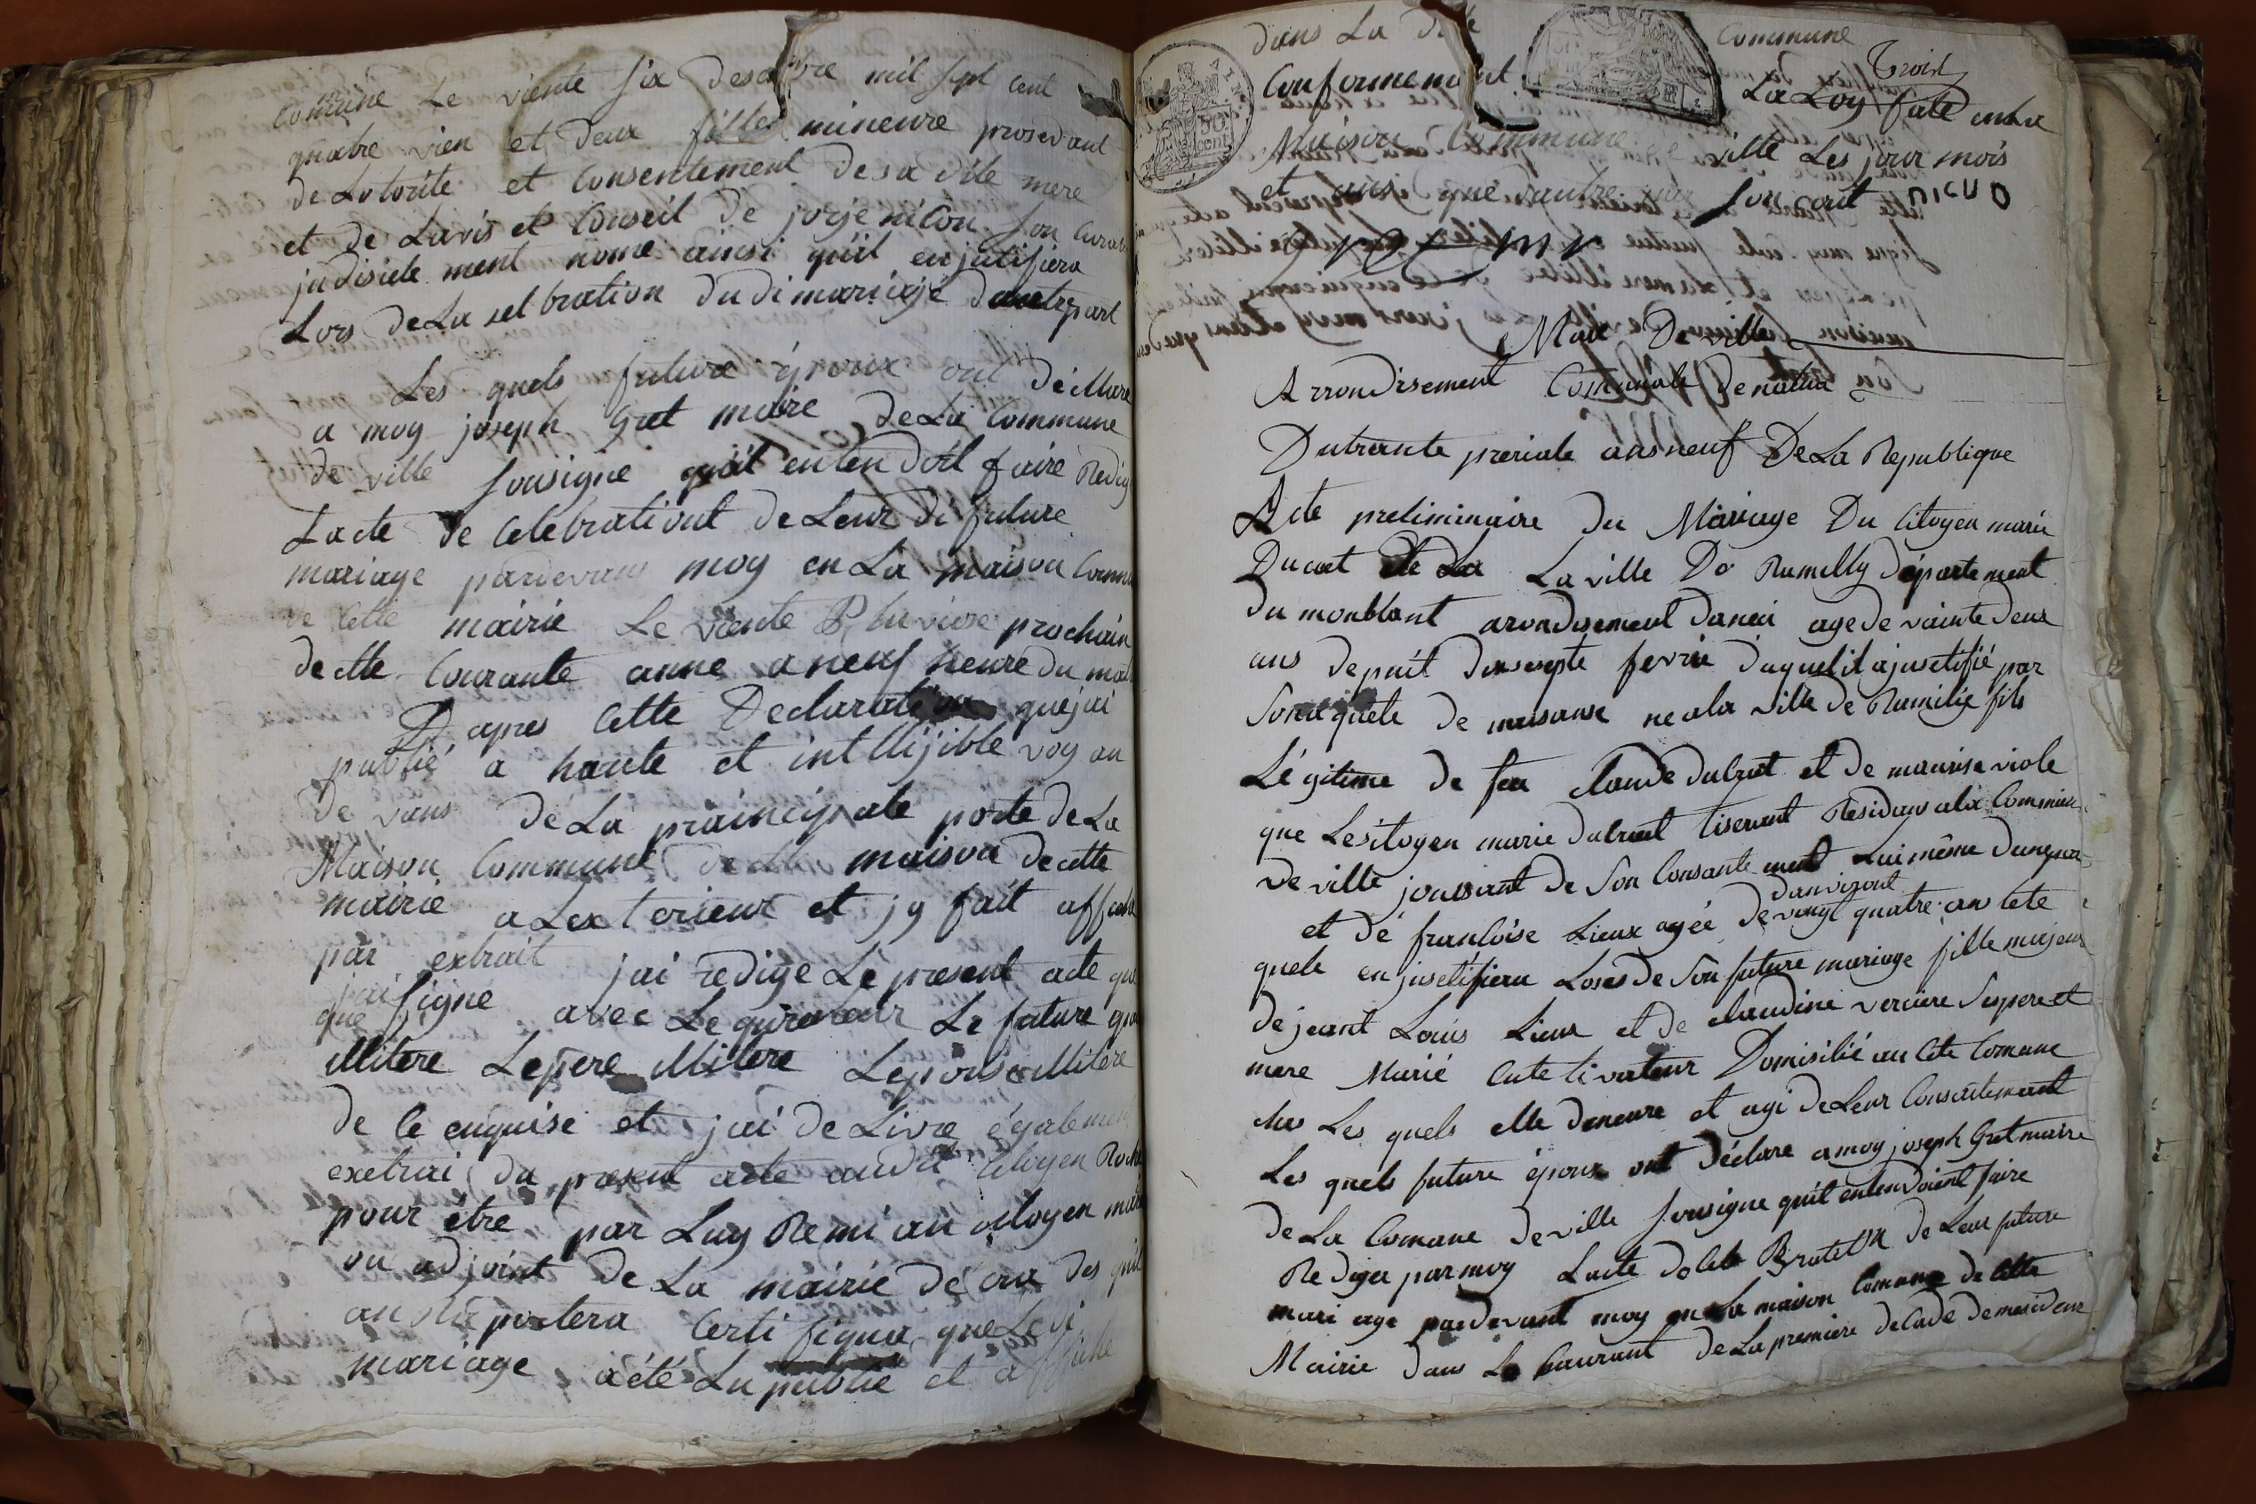 Comune Le viente six desambre mil sept cent
quatre vien et deux fille mineure prosedant
de Lotorite et Consentement de sa dite mere
et de Lavis et Conseil de jorje nicou son Curat
judisiele ment nome ainsi quil en jutifiera
Lors de La selbration du di mariaje dautrepart
Les quels future époux out déCllare
a moy joseph Gret maire de La Commune
de ville sousigne quil entendoit faire Redig
Lacte de Celebrationt de Leur di future
mariage pardevant moy en La maison Comm
de Cette mairie Le viente Pluviose prochain
de ctte Courante anne a neuf heure du mat
D apres Cette Declaration que jai
publié a haute et intellijible voy au
de vans de La praincipale porte de La
Maison Commune de maison de cette
mairie a Lex terieur et jy fait affich
par extrait jai redige Le present acte que
jai signe avec Le Le future
que
illitere Le pere illitere Le illitere
de Ce enquise et jai de Livre égalemen
exetrai du present acte audit Citoyen Roch
pour être par Luy Remi au citoyen mair
ou adjoint de La mairie de des quil
an portera Certi figua que Ledi
mariage a été Lu publie et affiche
dans La dite Commune
Troix
Conformement La Loy fate en La
Maison Commune de ville Les jour mois
et ans que dautre par son cout
Maire De ville
Arrondisement Comunale de natua
Dutrante preriale ans neuf De La Republique
Acte preliminaire du Mariage Du Citoyen marie
Ducret De La La ville De Rumilly département
du monblant arondisement daneci age de vainte deux
ans depuit dixsepte fevrie duquel il a justifié par
Son aquete de naisanse ne a la ville de Rumilie fils
Légitime de feu Claude dubruet et de maurise viole
que Le sitoyen marie dubruet tiserant Residant a la Commun
de ville jouisant de Son Consante ment Lui même dunepar
danviront
et de franCoise Lieux agée de vingt quatre ans lete
quele en jusetifiera Lores de Son future mariage fille majeur
de jeant Louis Lieux et de Claudine verciere Ses pere et
mere Marié Cutetivateur Domisilié au Cite Comune
ches Les quels elle demeure et agi de Leur Consentement
Les quels future époux ont déclare a moy joseph Gret maire
de La Comune de ville sousigne quil entendoient faire
Rediger par moy Lacte de Cele Bration de Leur future
mari age pardevant moy en La maison Comune de Cette
Mairie dans Le Caurant de La premiere decade de mesideur